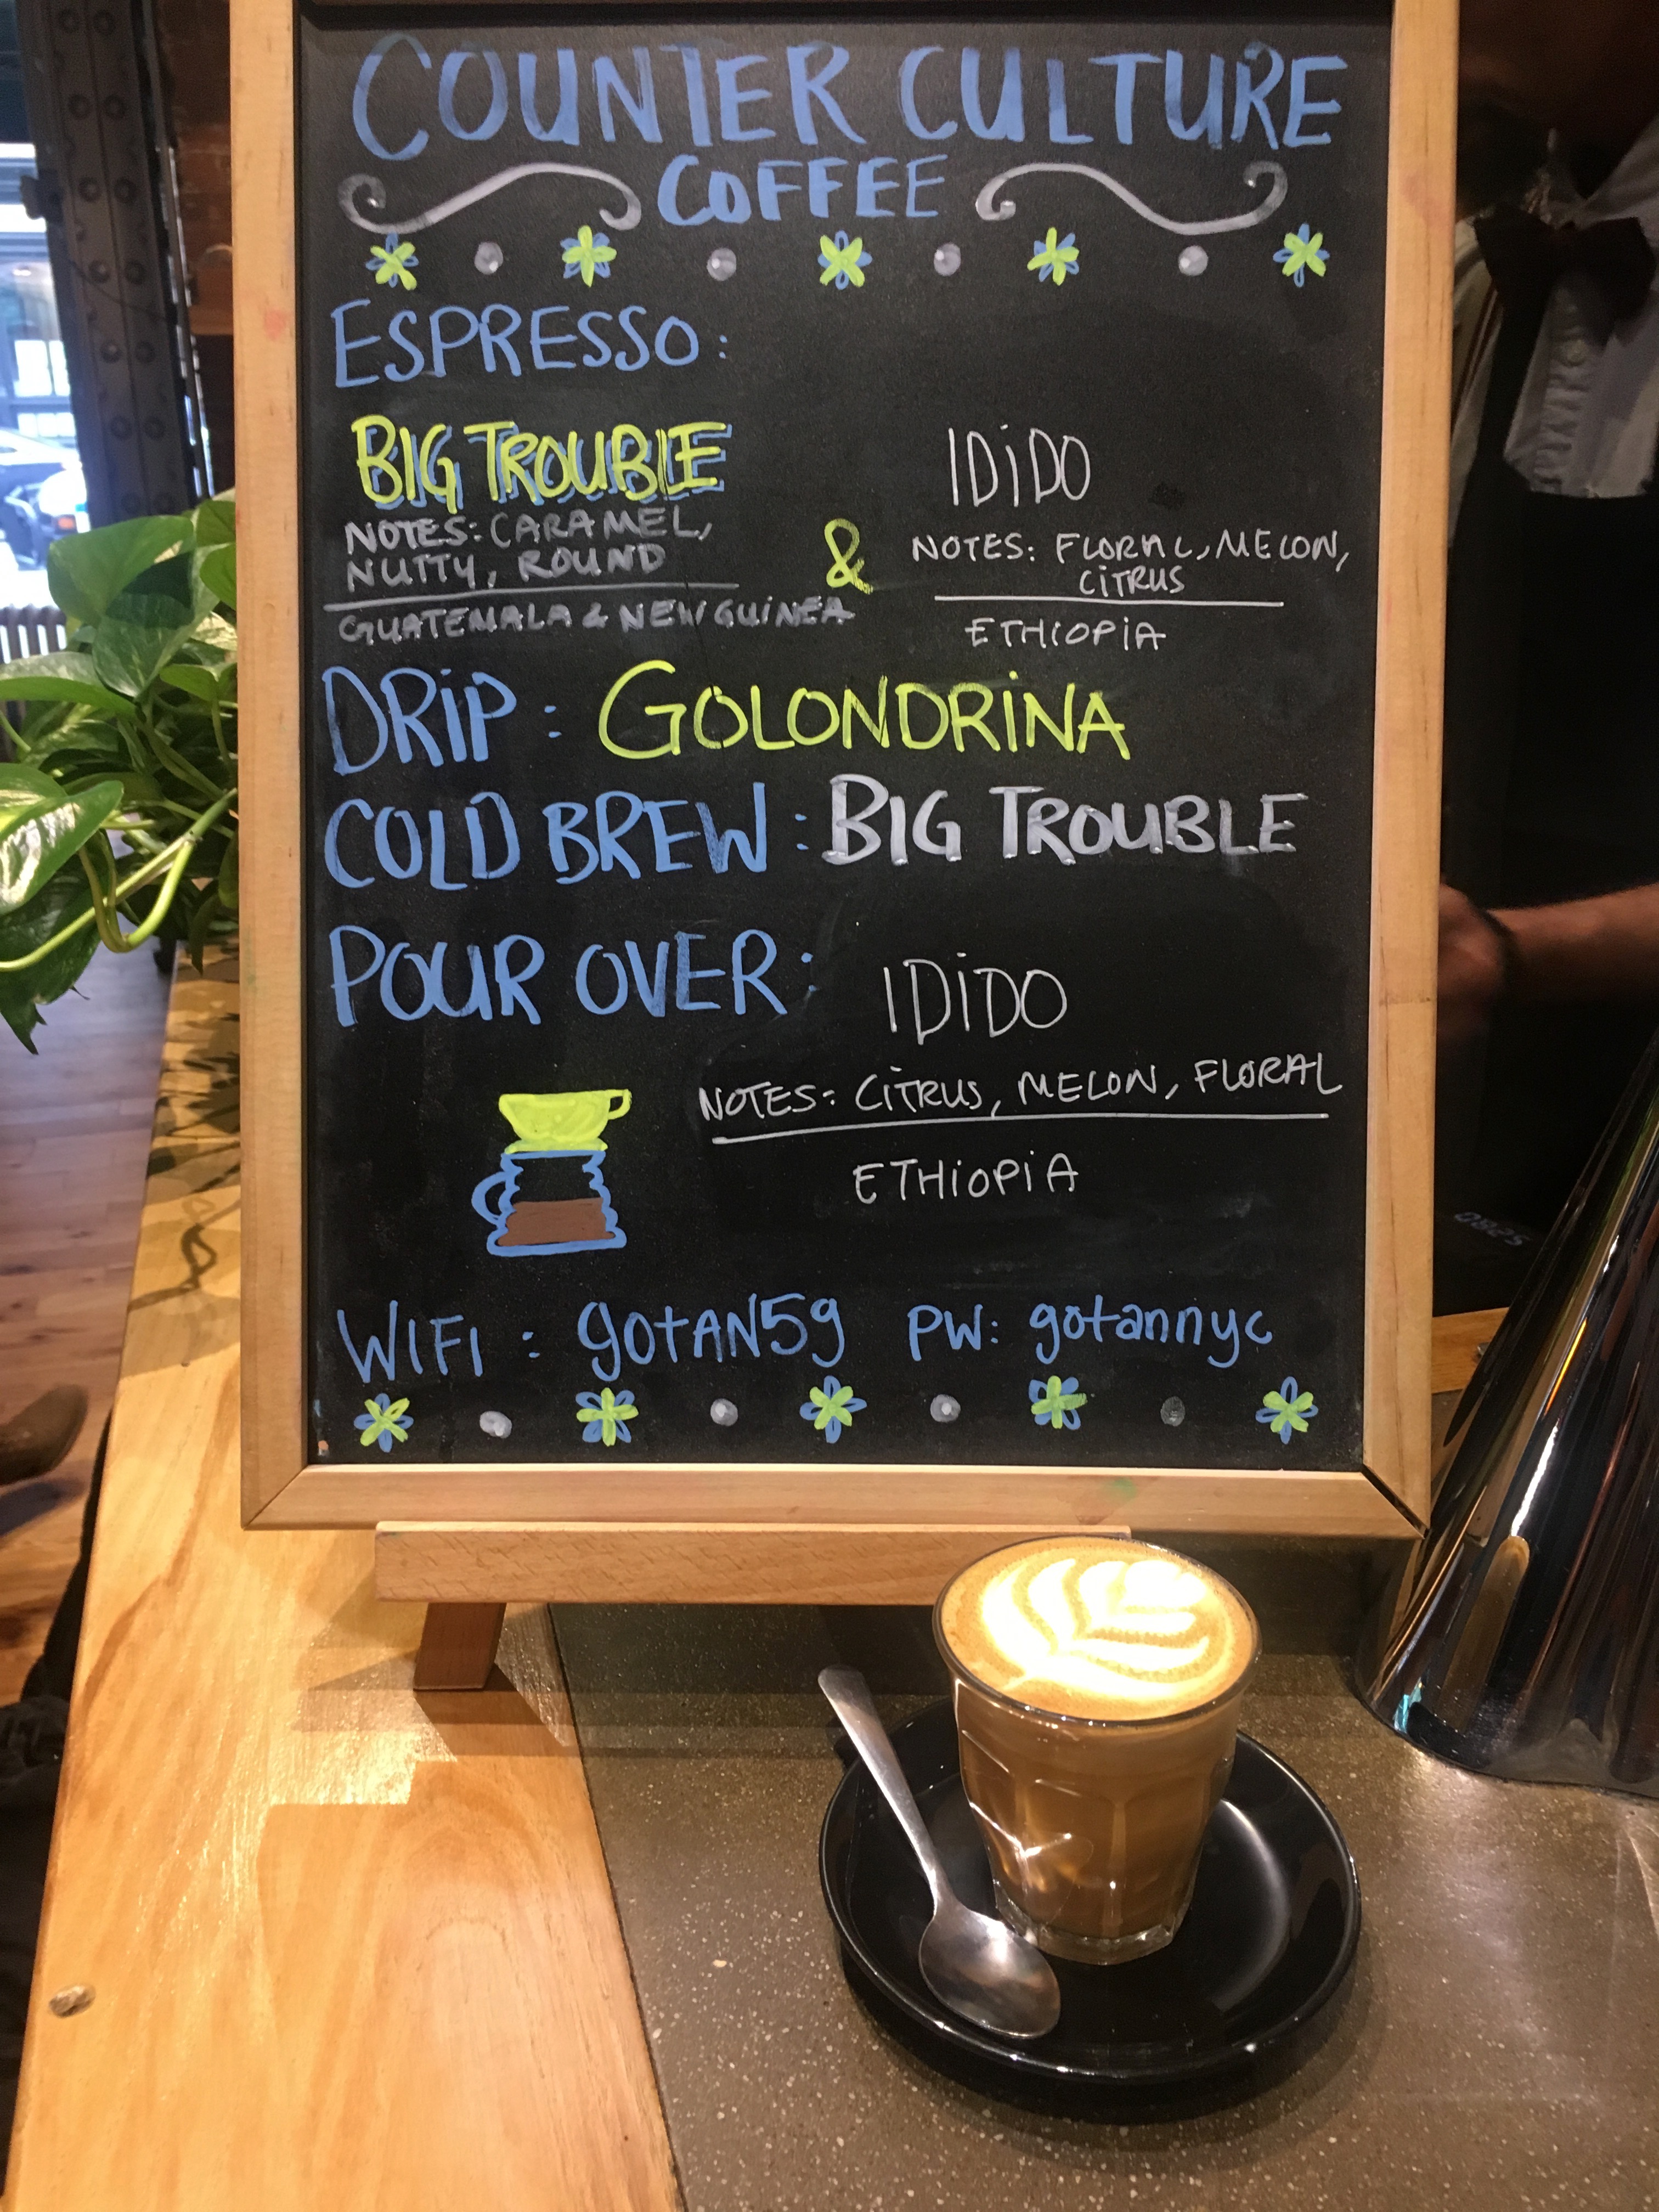 COUNTER CULTURE
COFFEE
ESPRESSO:
BIG TROUBLE
NOTES: CARAMEL,
NUTTY, ROUND
GUATEMALA & NEW GUINEA
&
IDIDO
NOTES: FLORAL, MELON,
CITRUS
ETHIOPIA
DRIP: GOLONDRINA
COLD BREW: BIG TROUBLE
POUR OVER: IDIDO
NOTES: CITRUS, MELON, FLORAL
ETHIOPIA
WIFI: gotAN59 PW: gotannyc